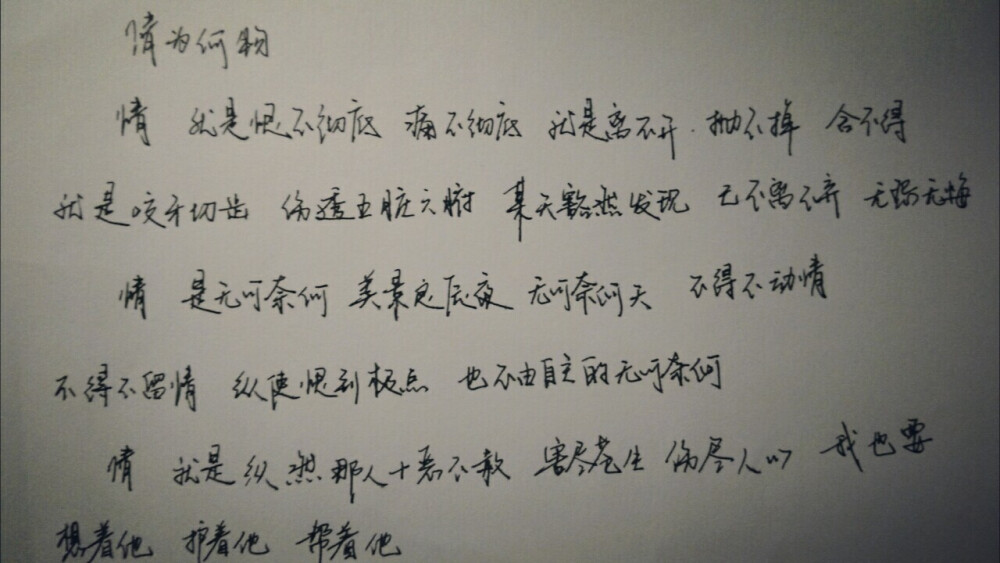 情为何物
情 就是恨不彻底 痛不彻底 就是离不开 抛不掉 舍不得
就是咬牙切齿 伤透五脏六腑 某天豁然发现 已不离不弃 无怨无悔
情 是无可奈何 美景良辰夜 无可奈何天 不得不动情
不得不留情 纵使恨到极点 也不由自主的无可奈何
情 就是纵然那人十恶不赦 害尽苍生 伤尽人心 我也要
想着他 护着他 帮着他